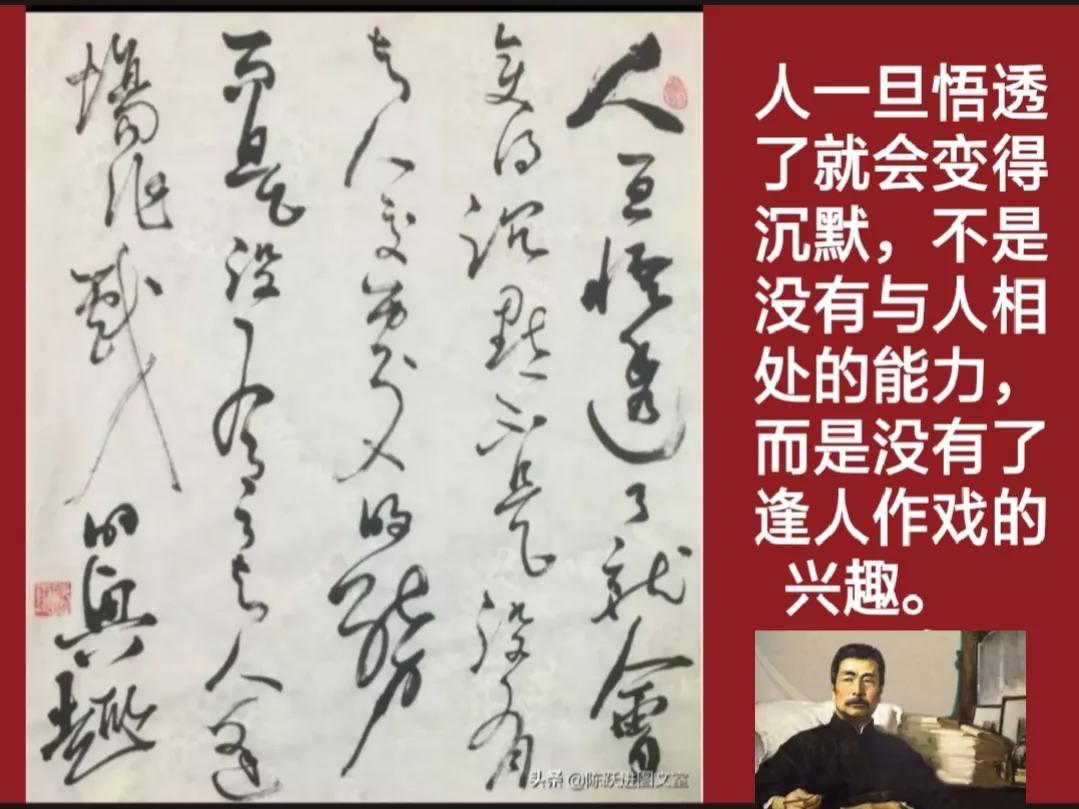 人一旦悟透了就會
变得沉默不是没有
与人的能力
而是没有了与人逢
場作戲的興趣
人一旦悟透
了就会变得
沉默，不是
没有与人相
处的能力，
而是没有了
逢人作戏的
兴趣。
头条 @陈跃进图文室